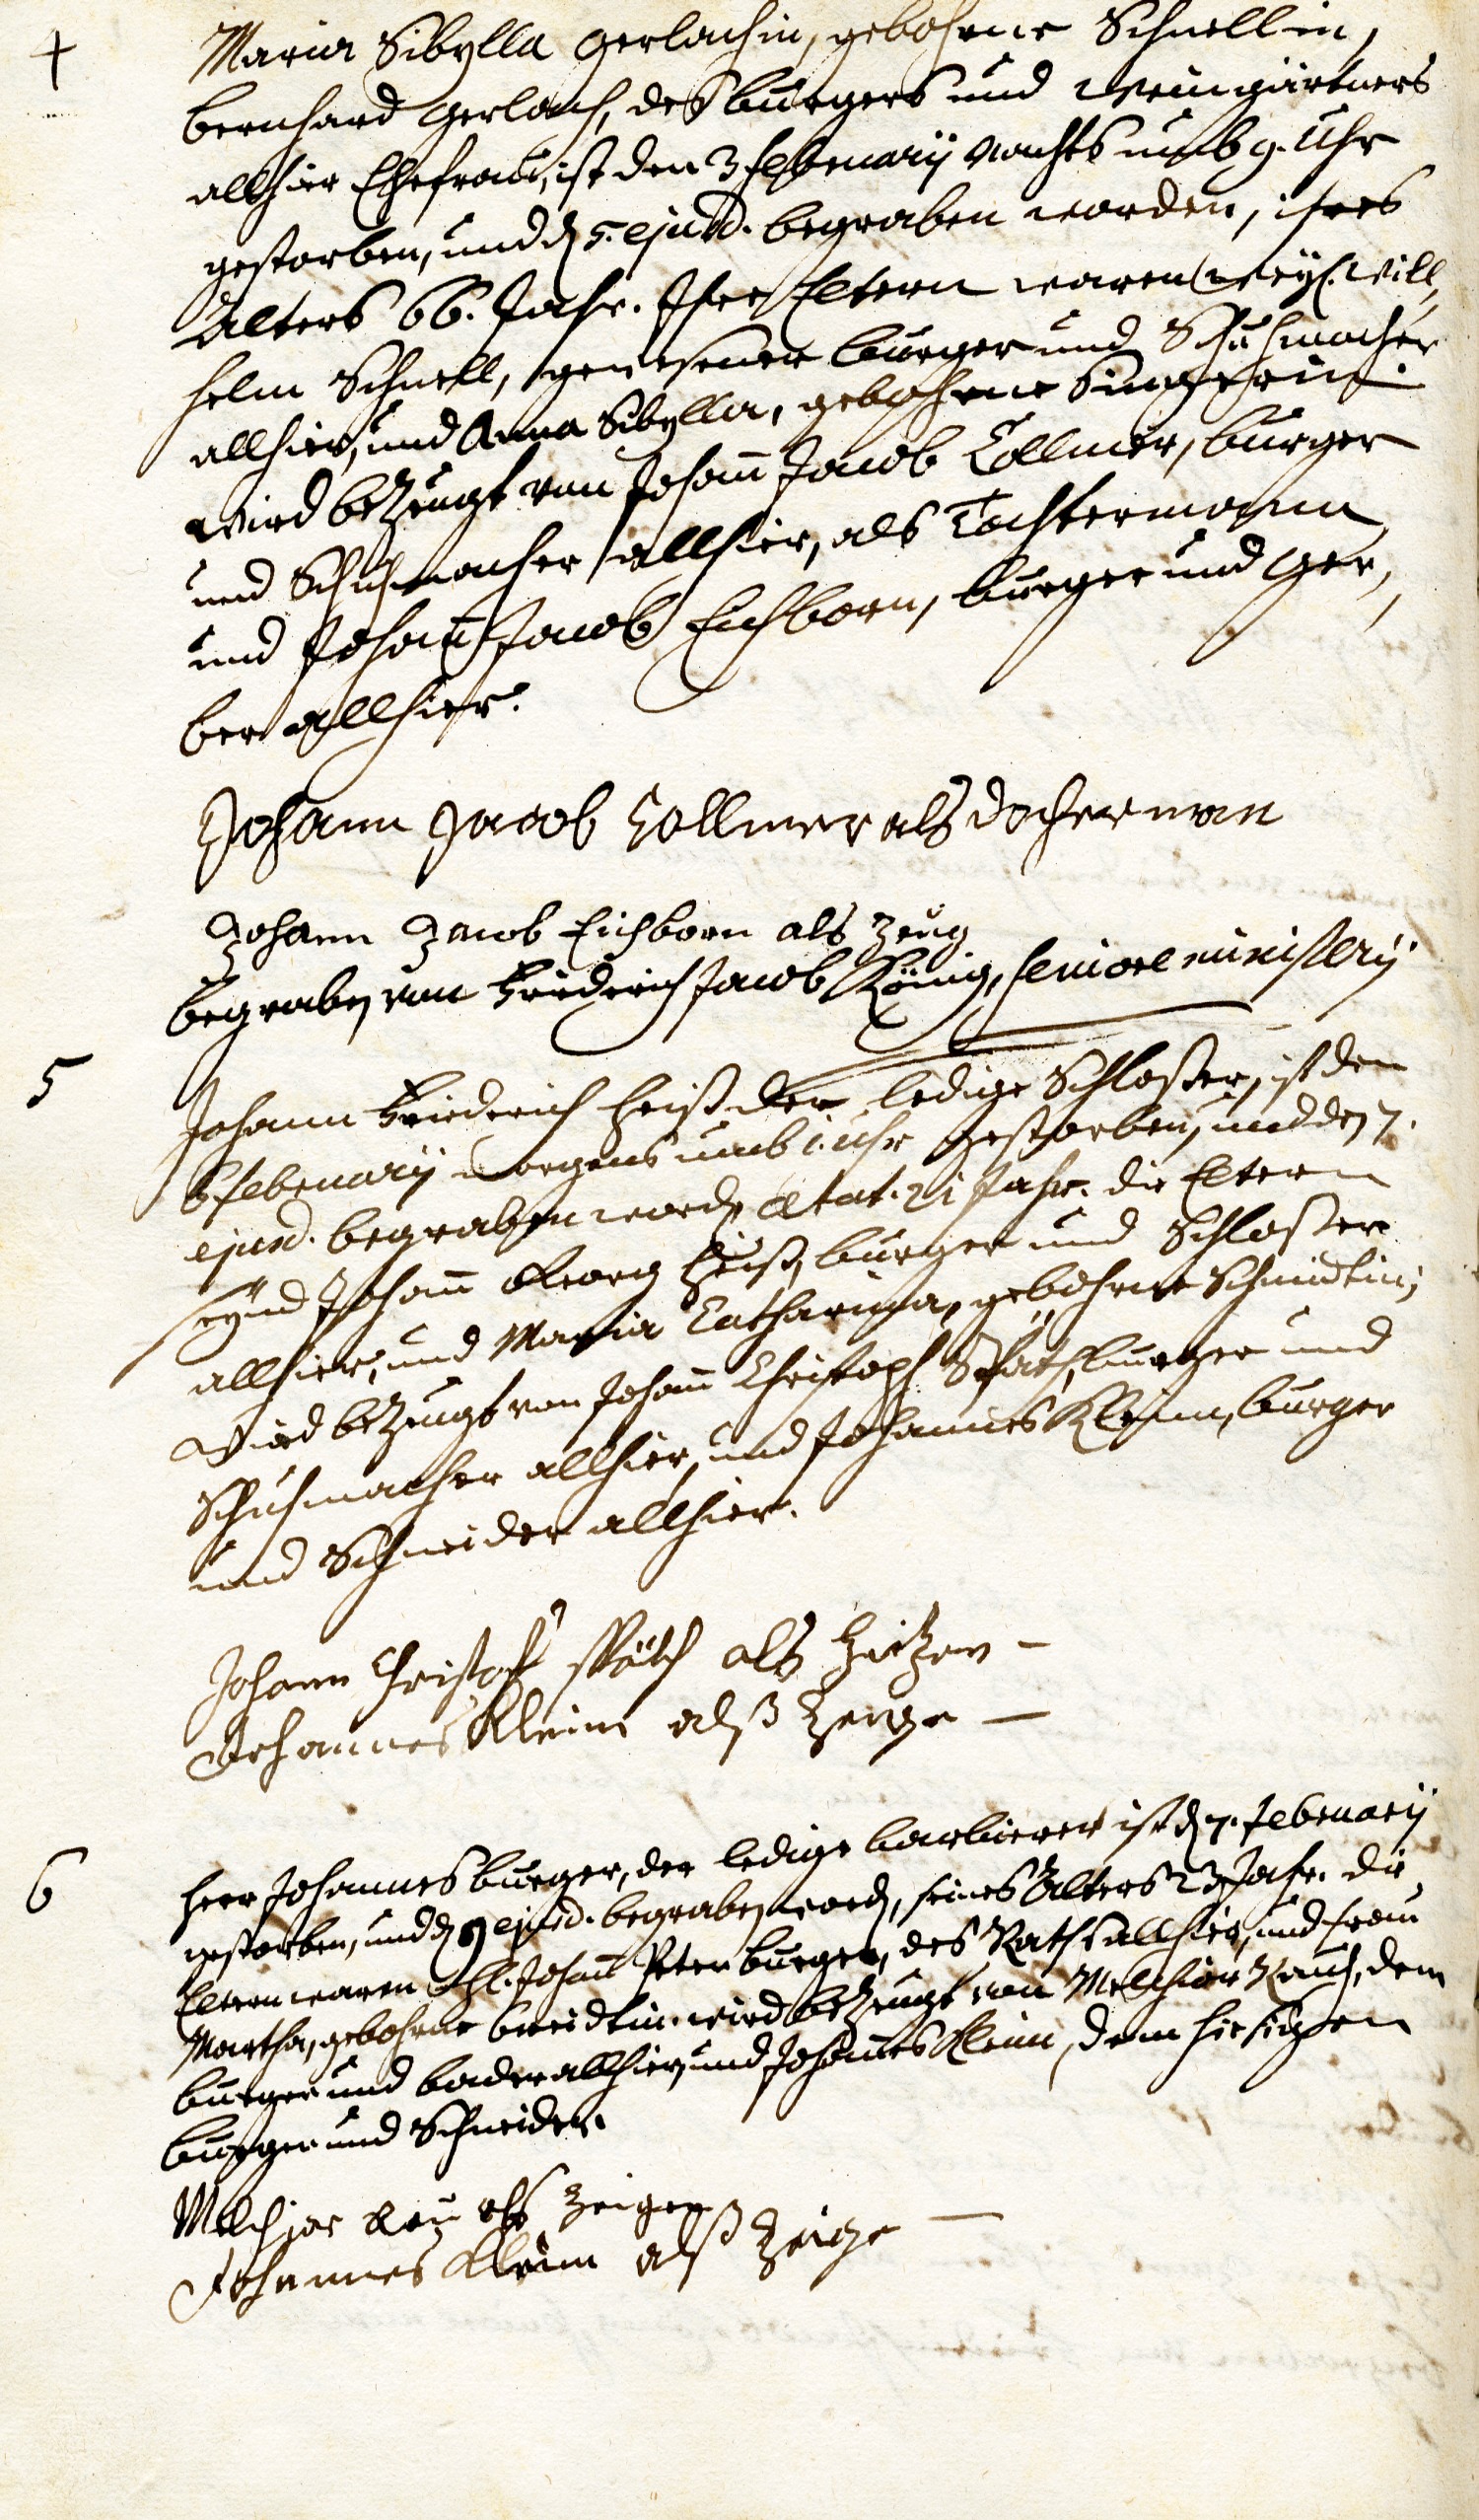 4
Maria Sibylla Gerlachin, gebohrne Schnellin,
Bernhard Gerlach, des burgers und Weingärtners
allhier Ehefrau, ist den 3 Februarij nachts umb 9. Uhr
gestorben, und d. 5. ejusd. begraben worden, ihres
Alters 66. Jahr. Ihre Eltern waren weyl. Will„
helm Schnell, gewesener burger und Schuhmacher
allhier, und Anna Sibylla, gebohrne
Wird bezeugt von Johann Jacob Collmer, burger
und Schuhmacher allhier, als Tochtermann
und Johann Jacob Eichborn, burger und Ger„
ber allhier.
Johann Jacob Collmer als docherman
Johann Jacob Eichborn als Zeug
begraben von Friederich Jacob König, seniore ministerij
5
Johann Friederich Heiß der ledige Schlosser, ist den
Februarij Morgens umb 1. Uhr gestorben, und den 7.
ejusd. begraben word. Aetat. 21 Jahr. die Eltern
seynd Johann Georg Heiß, burger und Schlosser
allhier, und Maria Catharina, gebohrne Schmidtin,
Wird bezeugt von Johann Christoph Späth, burger und
Schuhmacher allhier, und Johannes Klein, burger
und Schneider allhier.
Johann Christoph Späth als
Johannes Klein alß Zeuge
6
Herr Johannes burger, der ledige barbierer ist d. 7. Februarij
gestorben, und d. 9 ejusd. begraben word., seines Alters 23 Jahr. die
Eltern waren Johann Peter burger, des Raths allhier, und Frau
Martha, gebohrne wird bezeugt von Melchior Rauch, dem
burger und bader allhier, und Johannes Klein, dem hiesigen
burger und Schneider.
Melchior als Zeigen
Johannes Klein alß Zeige